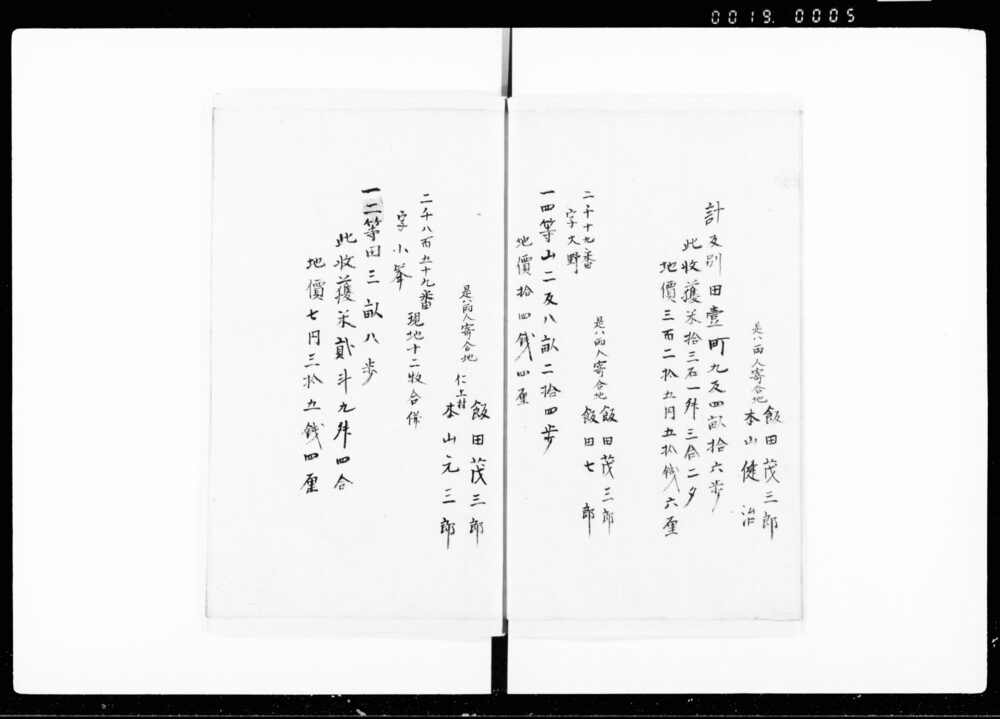 0019. 0005
飯田茂三郎
是ハ両人寄合地
本山健治
計反別田壹町九反四畝拾六歩
此收獲米拾三石一舛三合二夕
地價三百二拾五円五拾銭六厘
飯田茂三郎
是ハ両人寄合地
飯田七郎
二千十九番
字大野
一四等山二反八畝二拾四歩
地價拾四銭四厘
飯田茂三郎
是ハ両人寄合地
仁上村
本山元三郎
二千八百五十九番
現地十二牧合併
字小峯
一二等田三畝八歩
此收獲米貳斗九舛四合
地價七円三拾五銭四厘